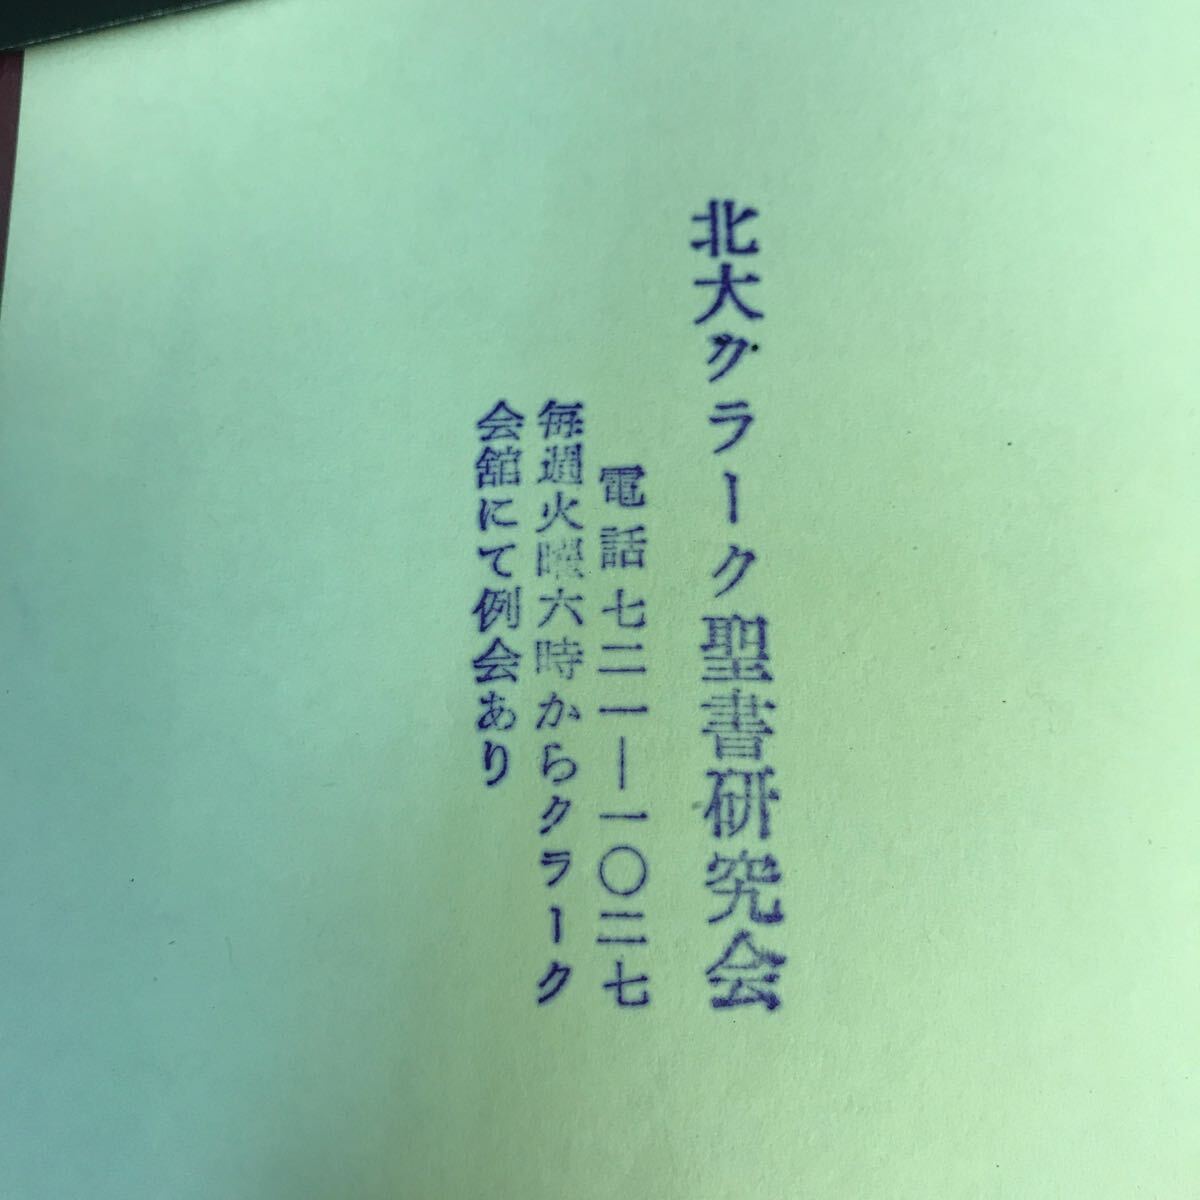 北大クラーク聖書研究会
電話七二一―一〇二七
毎週火曜六時からクラーク
会舘にて例会あり